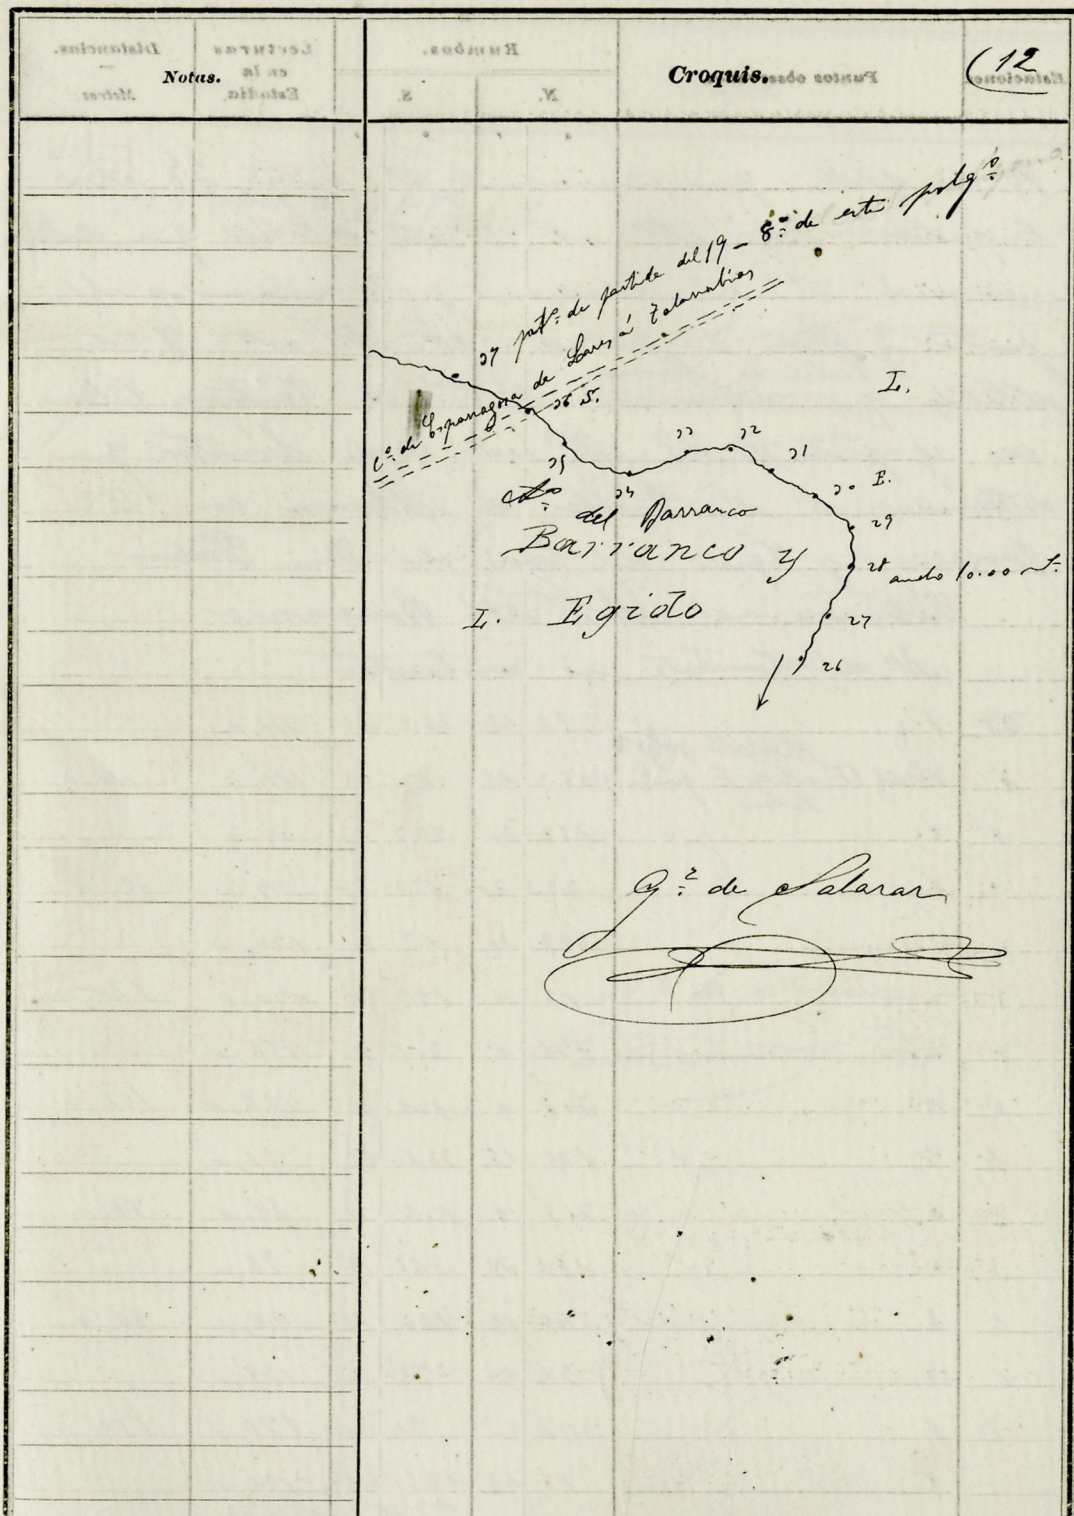 Notas.
Croquis.
(12
37 pto. de partida del 19 - 8º de este polgº
Cº de Esparragosa de Lares á Talarrubias
36 S.
L.
35
34
33
32
31
30 E.
29
28 ancho 10.00 mt.
27
26
Aº del Barranco
Barranco y
L. Egido
Gz de Salazar